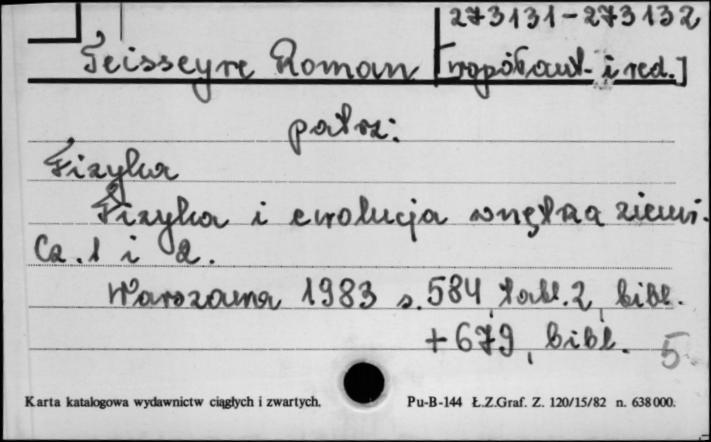 273131-273132
Teisseyre Roman [współaut. i red.]
patrz:
Fizyka
Fizyka i ewolucja wnętrza ziemi.
Cz. 1 i 2.
Warszawa 1983 s. 584, tabl. 2, bibl.
+ 679, bibl. 5
Karta katalogowa wydawnictw ciągłych i zwartych. Pu-B-144 Ł.Z.Graf. Z. 120/15/82 n. 638000.